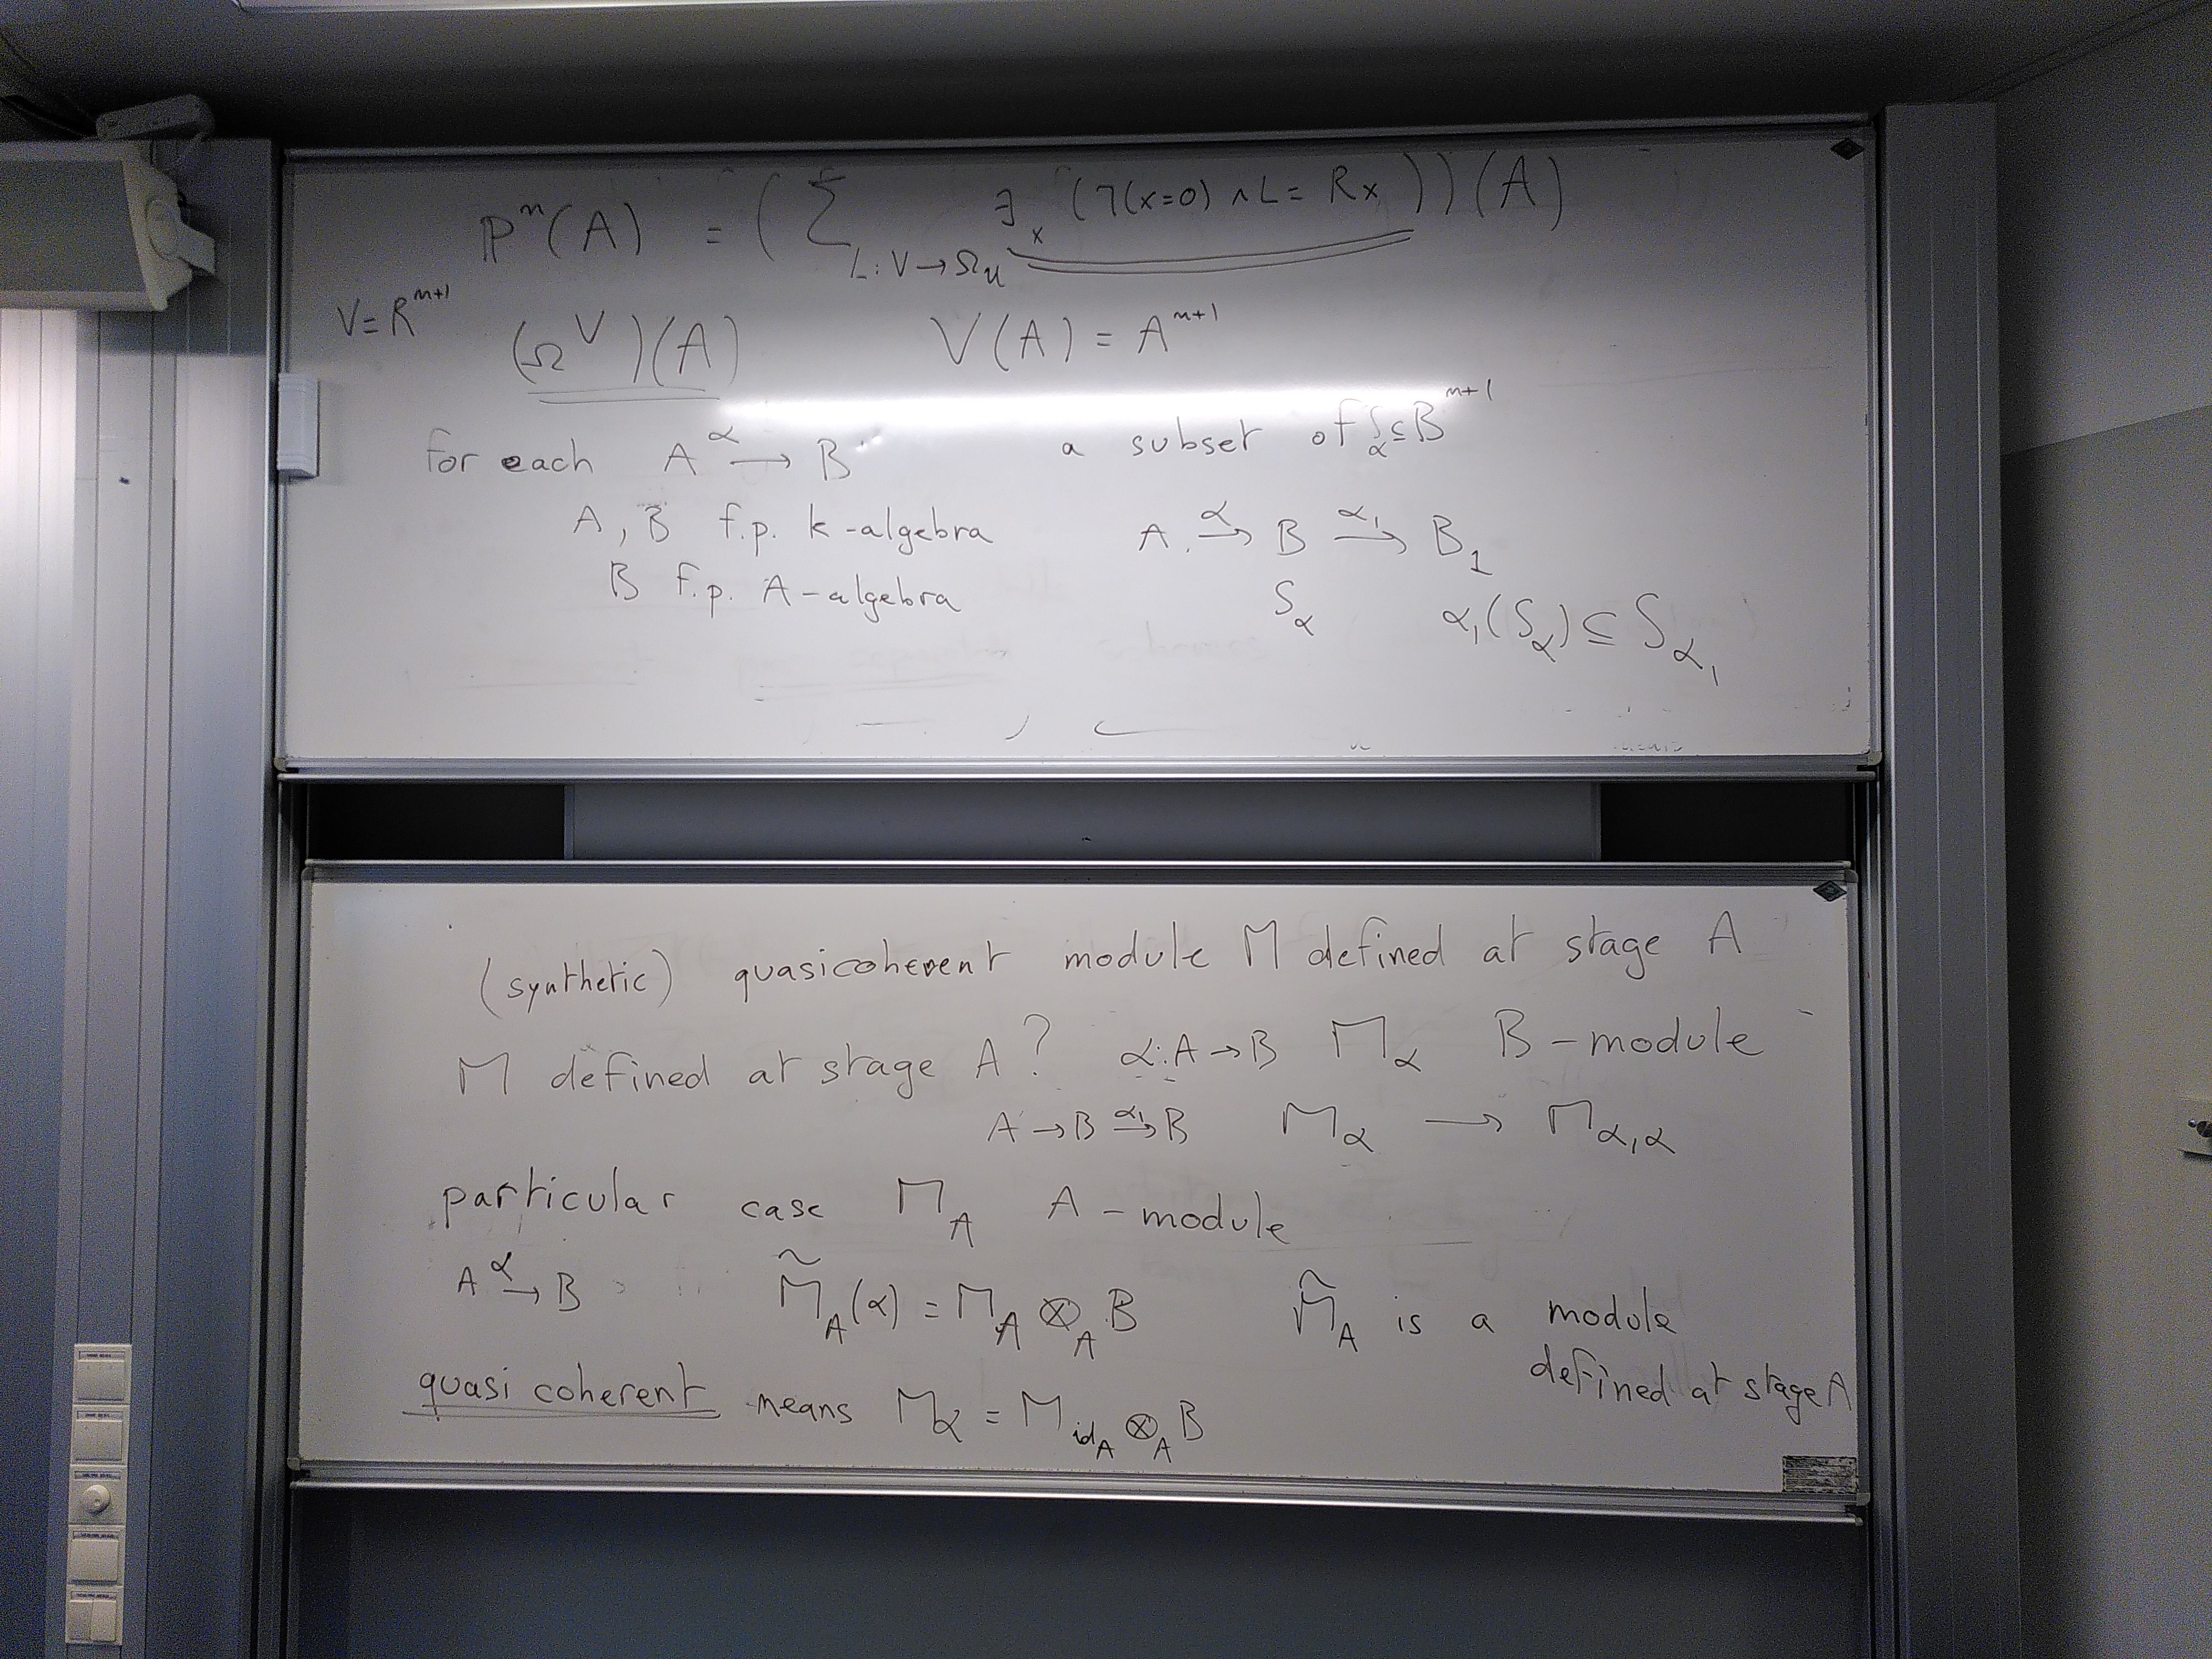 Pⁿ(A) = (Σ_{L:V→Ω_u} ∃_x (¬(x=0) ∧ L = Rx))(A)
V=R^{n+1}
(Ω^V)(A) V(A) = A^{n+1}
for each A →^α B a subset of S_α ⊆ B^{n+1}
A, B f.p. k-algebra A →^α B →^{α₁} B₁
B f.p. A-algebra S_α α₁(S_α) ⊆ S_{α₁}
(synthetic) quasicoherent module M defined at stage A
M defined at stage A? α:A→B M_α B-module
A→B →^{α₁} B M_α → M_{α₁α}
particular case M_A A-module
A →^α B M̃_A(α) = M_A ⊗_A B M̃_A is a module
defined at stage A
quasi coherent means M_α = M_{id_A} ⊗_A B